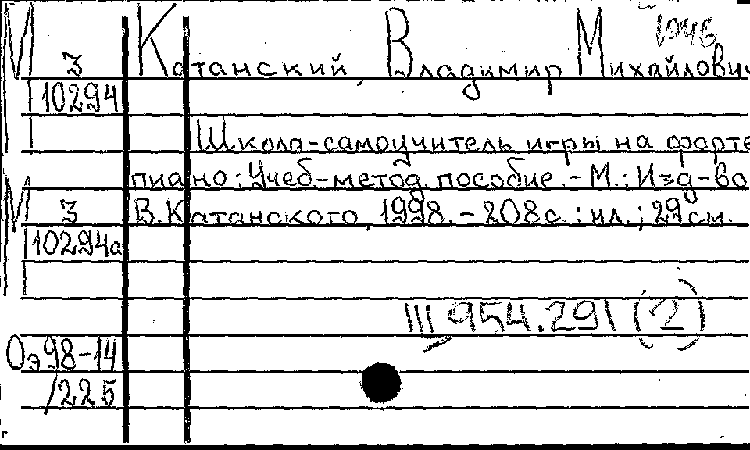 1946
М 3 Катанский, Владимир Михайлович
10294
Школа-самоучитель игры на форте
пиано: Учеб-метод. пособие. - М.: Изд-во
М 3 В. Катанского, 1998. - 208 с.: ил.; 29 см.
10294а
III 954.291 (2)
Оэ98-14
/225